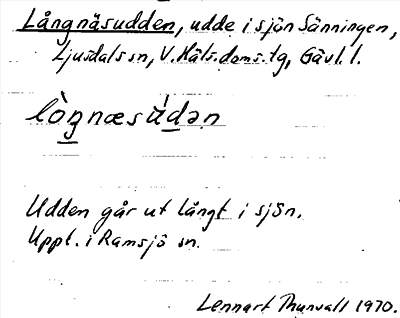 Långnäsudden, udde i sjön Sänningen,
Ljusdals sn, V. Häls. doms. tg, Gävl. l.
lògnæsúdən
Udden går ut långt i sjön.
Uppl. i Ramsjö sn.
Lennart Thunvall 1970.